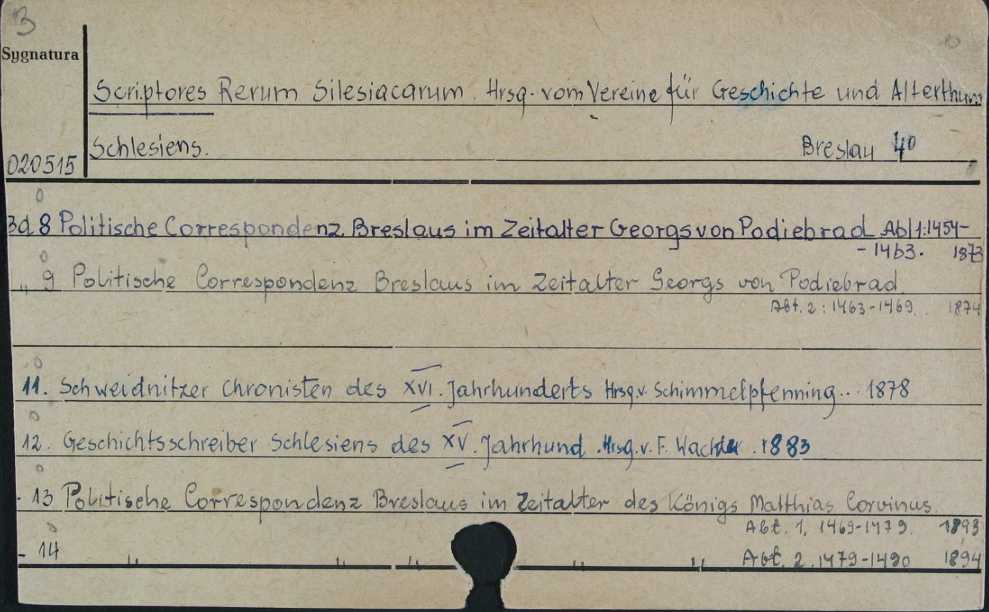 B
Sygnatura
Scriptores Rerum Silesiacarum. Hrsg. vom Vereine für Geschichte und Alterthum
Schlesiens. Breslau 4°
020515
Bd. 8 Politische Correspondenz Breslaus im Zeitalter Georgs von Podiebrad Abl 1:1454-
- 1463. 1873
" 9 Politische Correspondenz Breslaus im Zeitalter Georgs von Podiebrad
Abt. 2: 1463-1469. 1874
11. Schweidnitzer Chronisten des XVI. Jahrhunderts Hrsg. v. Schimmelpfenning.. 1878
12. Geschichtsschreiber Schlesiens des XV. Jahrhund. Hrsg. v. F. Wachter. 1883
- 13 Politische Correspondenz Breslaus im Zeitalter des Königs Matthias Corvinus.
Abt. 1, 1469-1479. 1893
- 14 " " " " " Abt. 2. 1479-1490 1894